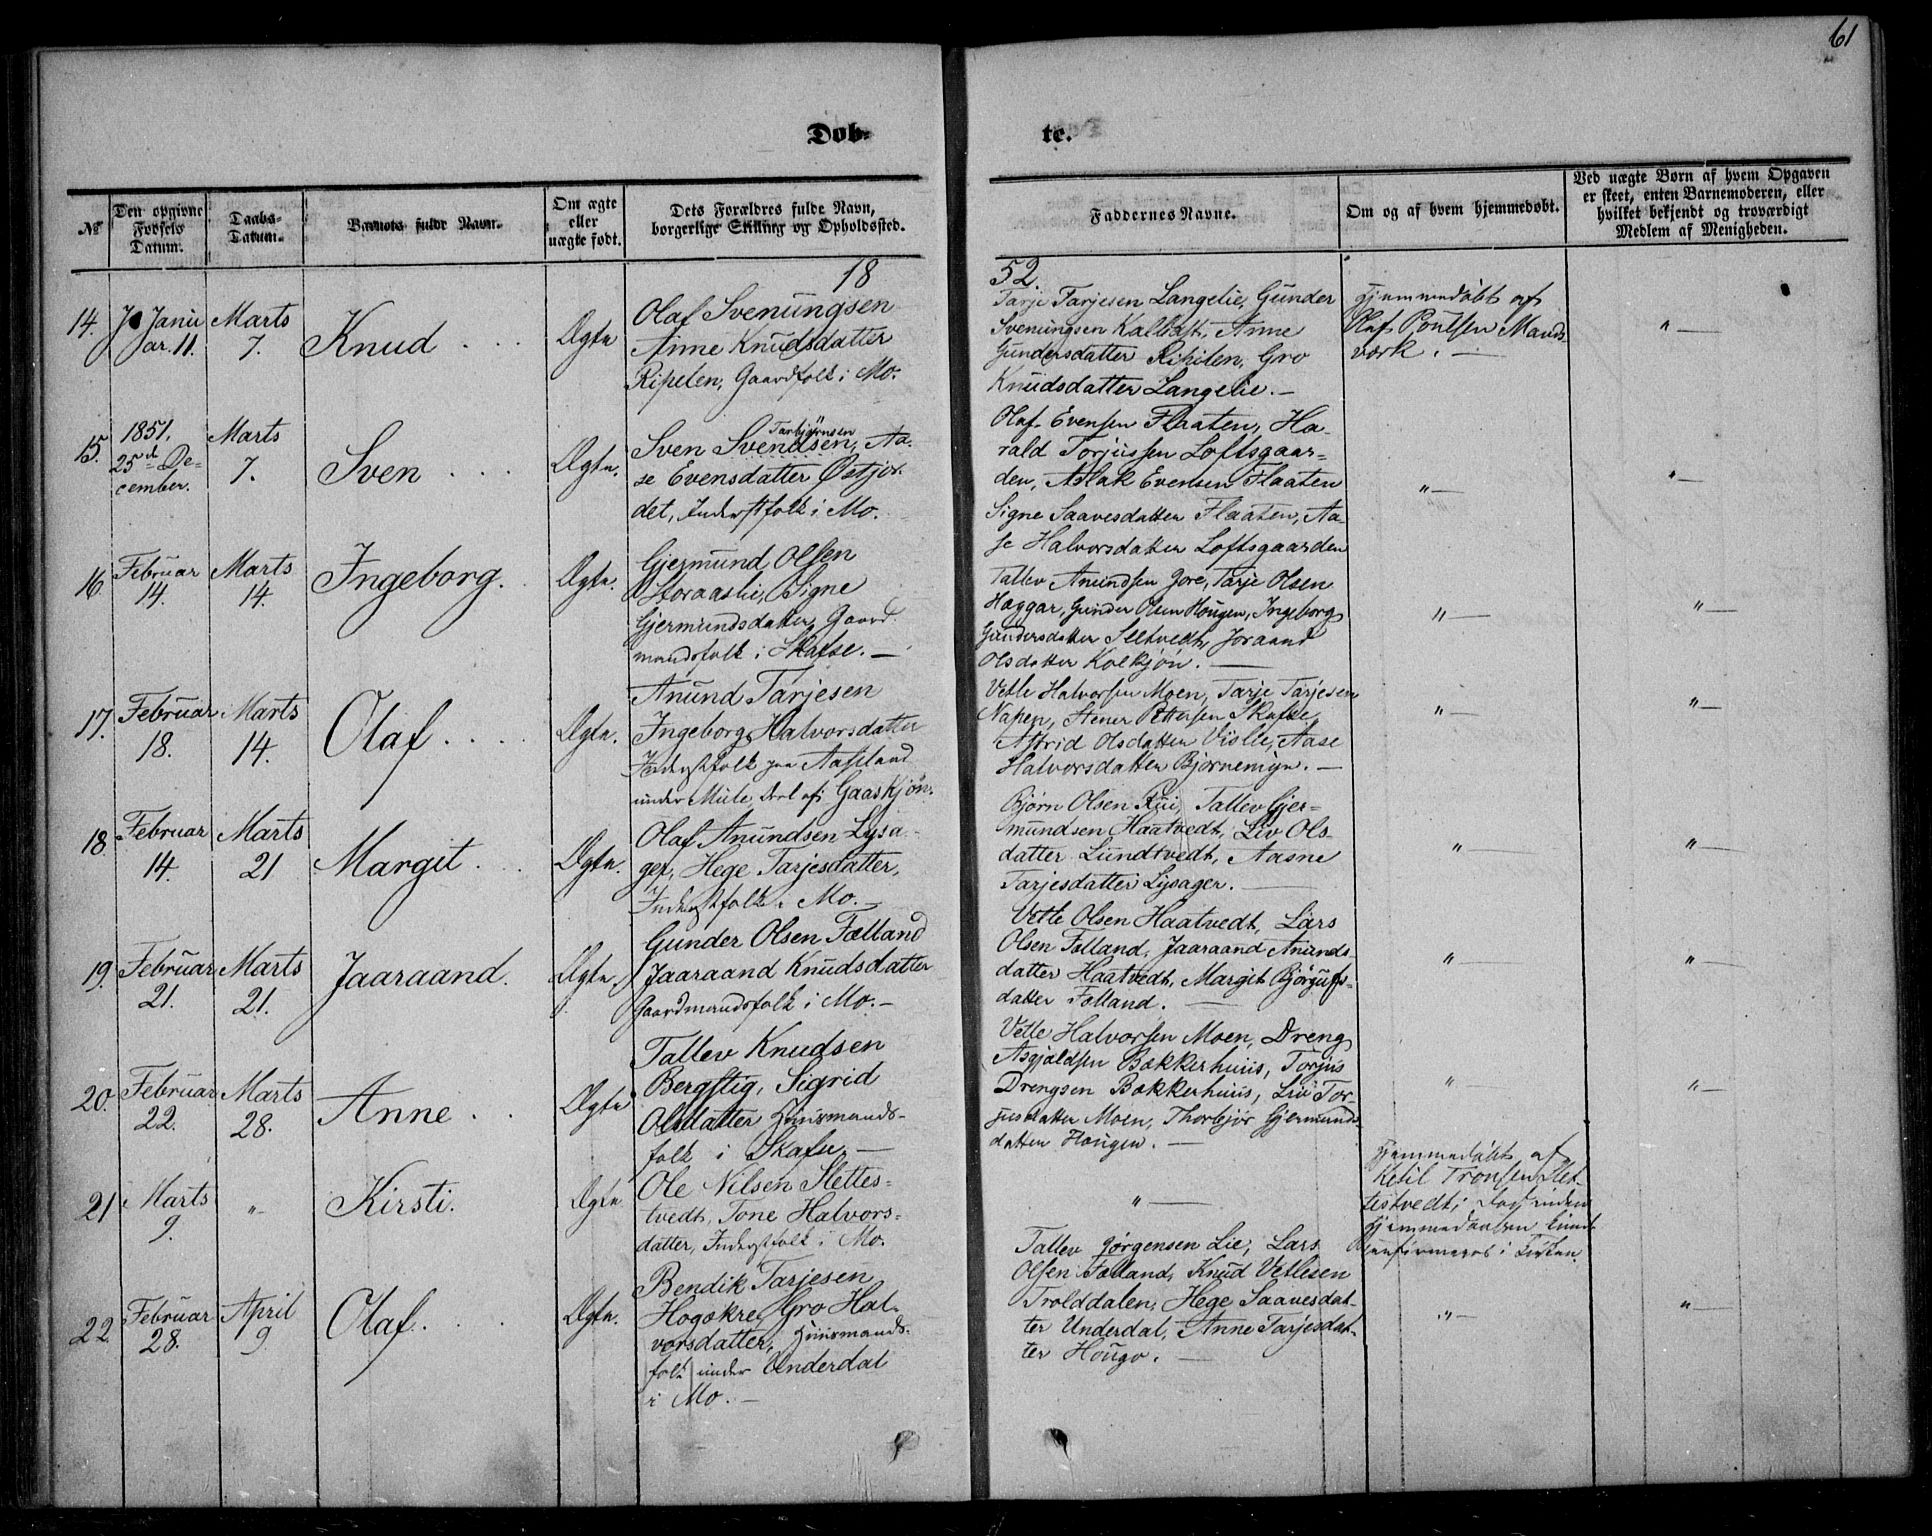 61
Døb-
te.
No
Den opgivne
Fødsels
Datum.
Daabs-
Datum.
Barnets fulde Navn.
Om ægte
eller
uægte født.
Dets Forældres fulde Navn,
borgerlige Stilling og Opholdssted.
Faddernes Navne.
Om og af hvem hjemmedøbt.
Ved uægte Børn af hvem Opgaven
er skeet, enten Barnemoderen, eller
hvilket bekjendt og troværdigt
Medlem af Menigheden.
18
52.
14.
Janu
ar. 11.
Marts
7.
Knud
Ægte
Olaf Svenungsen
Anne Knudsdatter
Ripelen, Gaardfolk i Mo.
Tarje Tarjesen Langelie, Gunder
Svenungsen Kalbat, Anne
Gundersdatter Ripilen, Gro
Knudsdatter Langelie. —
Hjemmedøbt af
Olaf Poulsen Mands-
værk. —
" —
15.
1851.
25d De-
cember.
Marts
7.
Sven
Ægte.
Tarbjørnsen
Sven Svendsen, Aa-
se Evensdatter Østjor-
det, Inderstfolk i Mo.
Olaf Evensen Flaaten, Ha-
rald Torjussen Loftsgaar-
den, Aslak Evensen Flaaten
Signe Saavesdatter Flaaten, Aa-
se Halvorsdatter Loftsgaarden
" —
" —
16.
Februar
14.
Marts
14.
Ingeborg.
Ægte.
Gjermund Olsen
Storaaslie, Signe
Gjermundsdatter, Gaard
mandsfolk i Skafse. —
Tallev Anundsen Jore, Tarje Olsen
Haggar, Gunder Olsen Hougen, Ingeborg
Gundersdatter Seltvedt, Joraand
Olsdatter Kolkjøn. —
" —
" —
17.
Februar
18.
Marts
14.
Olaf
Ægte.
Anund Tarjesen
Ingeborg Halvorsdatter
Inderstfolk paa Aasland
under Mule, Deel af Gaaskjøn.
Vetle Halvorsen Moen, Tarje Tarjesen
Napen, Stener Pettersen Skafse,
Astrid Olsdatter Vislie, Aase
Halvorsdatter Bjørnemyn. —
" —
" —
18.
Februar
14.
Marts
21
Margit
Ægte.
Olaf Anundsen Lysa-
ger, Hege Tarjesdatter,
Inderstfolk i Mo. —
Bjørn Olsen Rui, Tallev Gjer-
mundsen Haatvedt, Liv Ols-
datter Lundtvedt, Aasne
Tarjesdatter Lysager. —
" —
" —
19.
Februar
21.
Marts
21.
Jaaraand.
Ægte.
Gunder Olsen Fælland
Jaaraand Knudsdatter
Gaardmandsfolk i Mo. —
Vetle Olsen Haatvedt, Lars
Olsen Fælland, Jaaraand Anunds-
datter Haatvedt, Margit Bjørgufs-
datter Fælland. —
" —
" —
20.
Februar
22.
Marts
28.
Anne
Ægte
Tallev Knudsen
Bergstig, Sigrid
Olsdatter Huusmands-
folk i Skafse. —
Vetle Halvorsen Moen, Dreng
Asgjeldsen Bakkerhuus, Torjus
Drengsen Bakkerhuus, Liv Tor-
jusdatter Moen, Thorbjør Gjermunds-
datter Hougen. —
" —
" —
21
Marts
9.
"
Kirsti.
Ægte
Ole Nilsen Slettes-
tvedt, Tone Halvors-
datter, Inderstfolk i Mo.
" —
Hjemmedøbt af
Ketil Tronsen Slet-
testvedt;
22
Februar
28.
April
9
Olaf.
Ægte.
Bendik Tarjesen
Hogskre, Gro Hal-
vorsdatter, Huusmands-
folk under Underdal
i Mo. —
Tallev Jørgensen Lie, Lars
Olsen Fælland, Knud Vetlesen
Trolddalen, Hege Saavesdat-
ter Underdal, Anne Tarjesdat-
ter Hougo. —
" —
" —